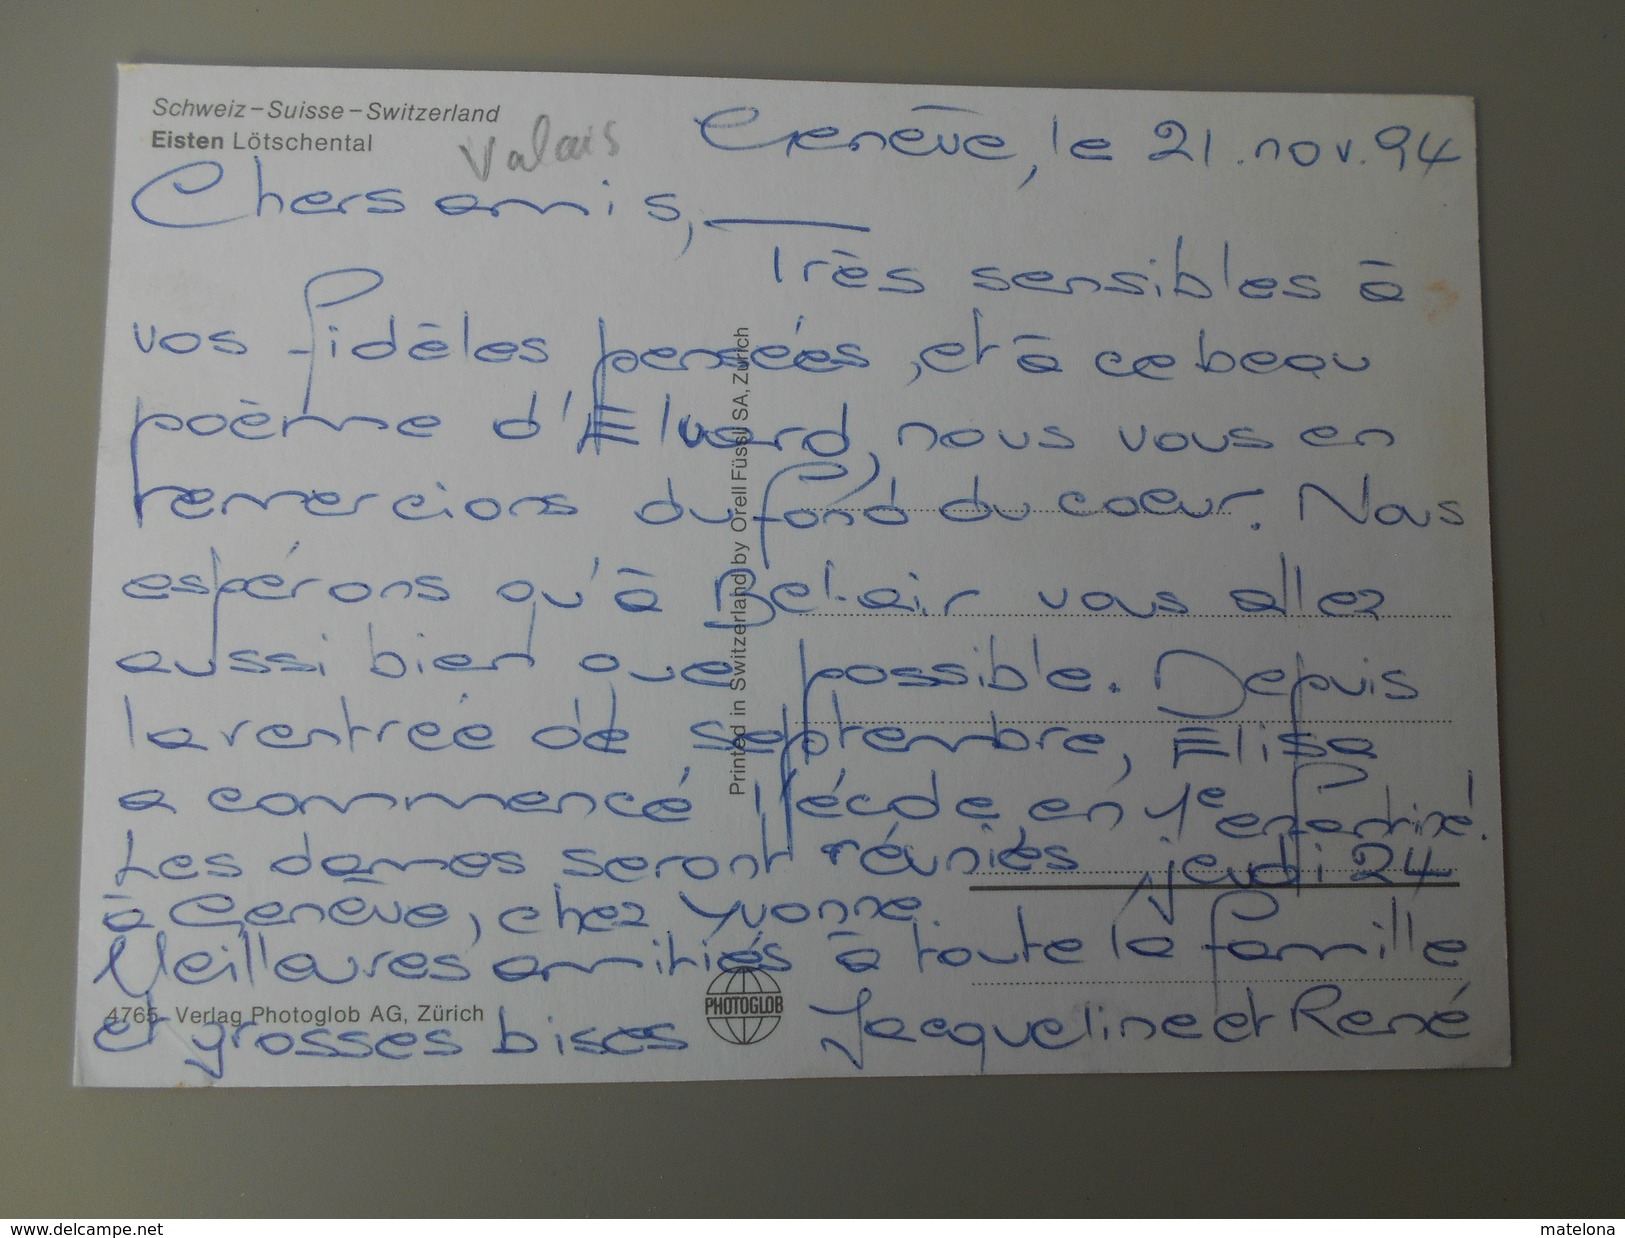 Schweiz–Suisse–Switzerland
Eisten Lötschental
Valais
Genève, le 21.nov.94
Chers amis,
Très sensibles à
vos fidèles pensées, et à ce beau
poème d'Eluard, nous vous en
remercions du fond du coeur. Nous
espérons qu'à Bel-air vous allez
aussi bien que possible. Depuis
la rentrée de septembre, Elisa
a commencé l'école en 1e enfantine!
Les dames seront réunies jeudi 24
à Genève, chez Yvonne.
Meilleures amitiés à toute la famille
et grosses bises Jacqueline et René
4765 Verlag Photoglob AG, Zürich
PHOTOGLOB
Printed in Switzerland by Orell Füssli SA, Zürich
www.delcampe.net
matelona